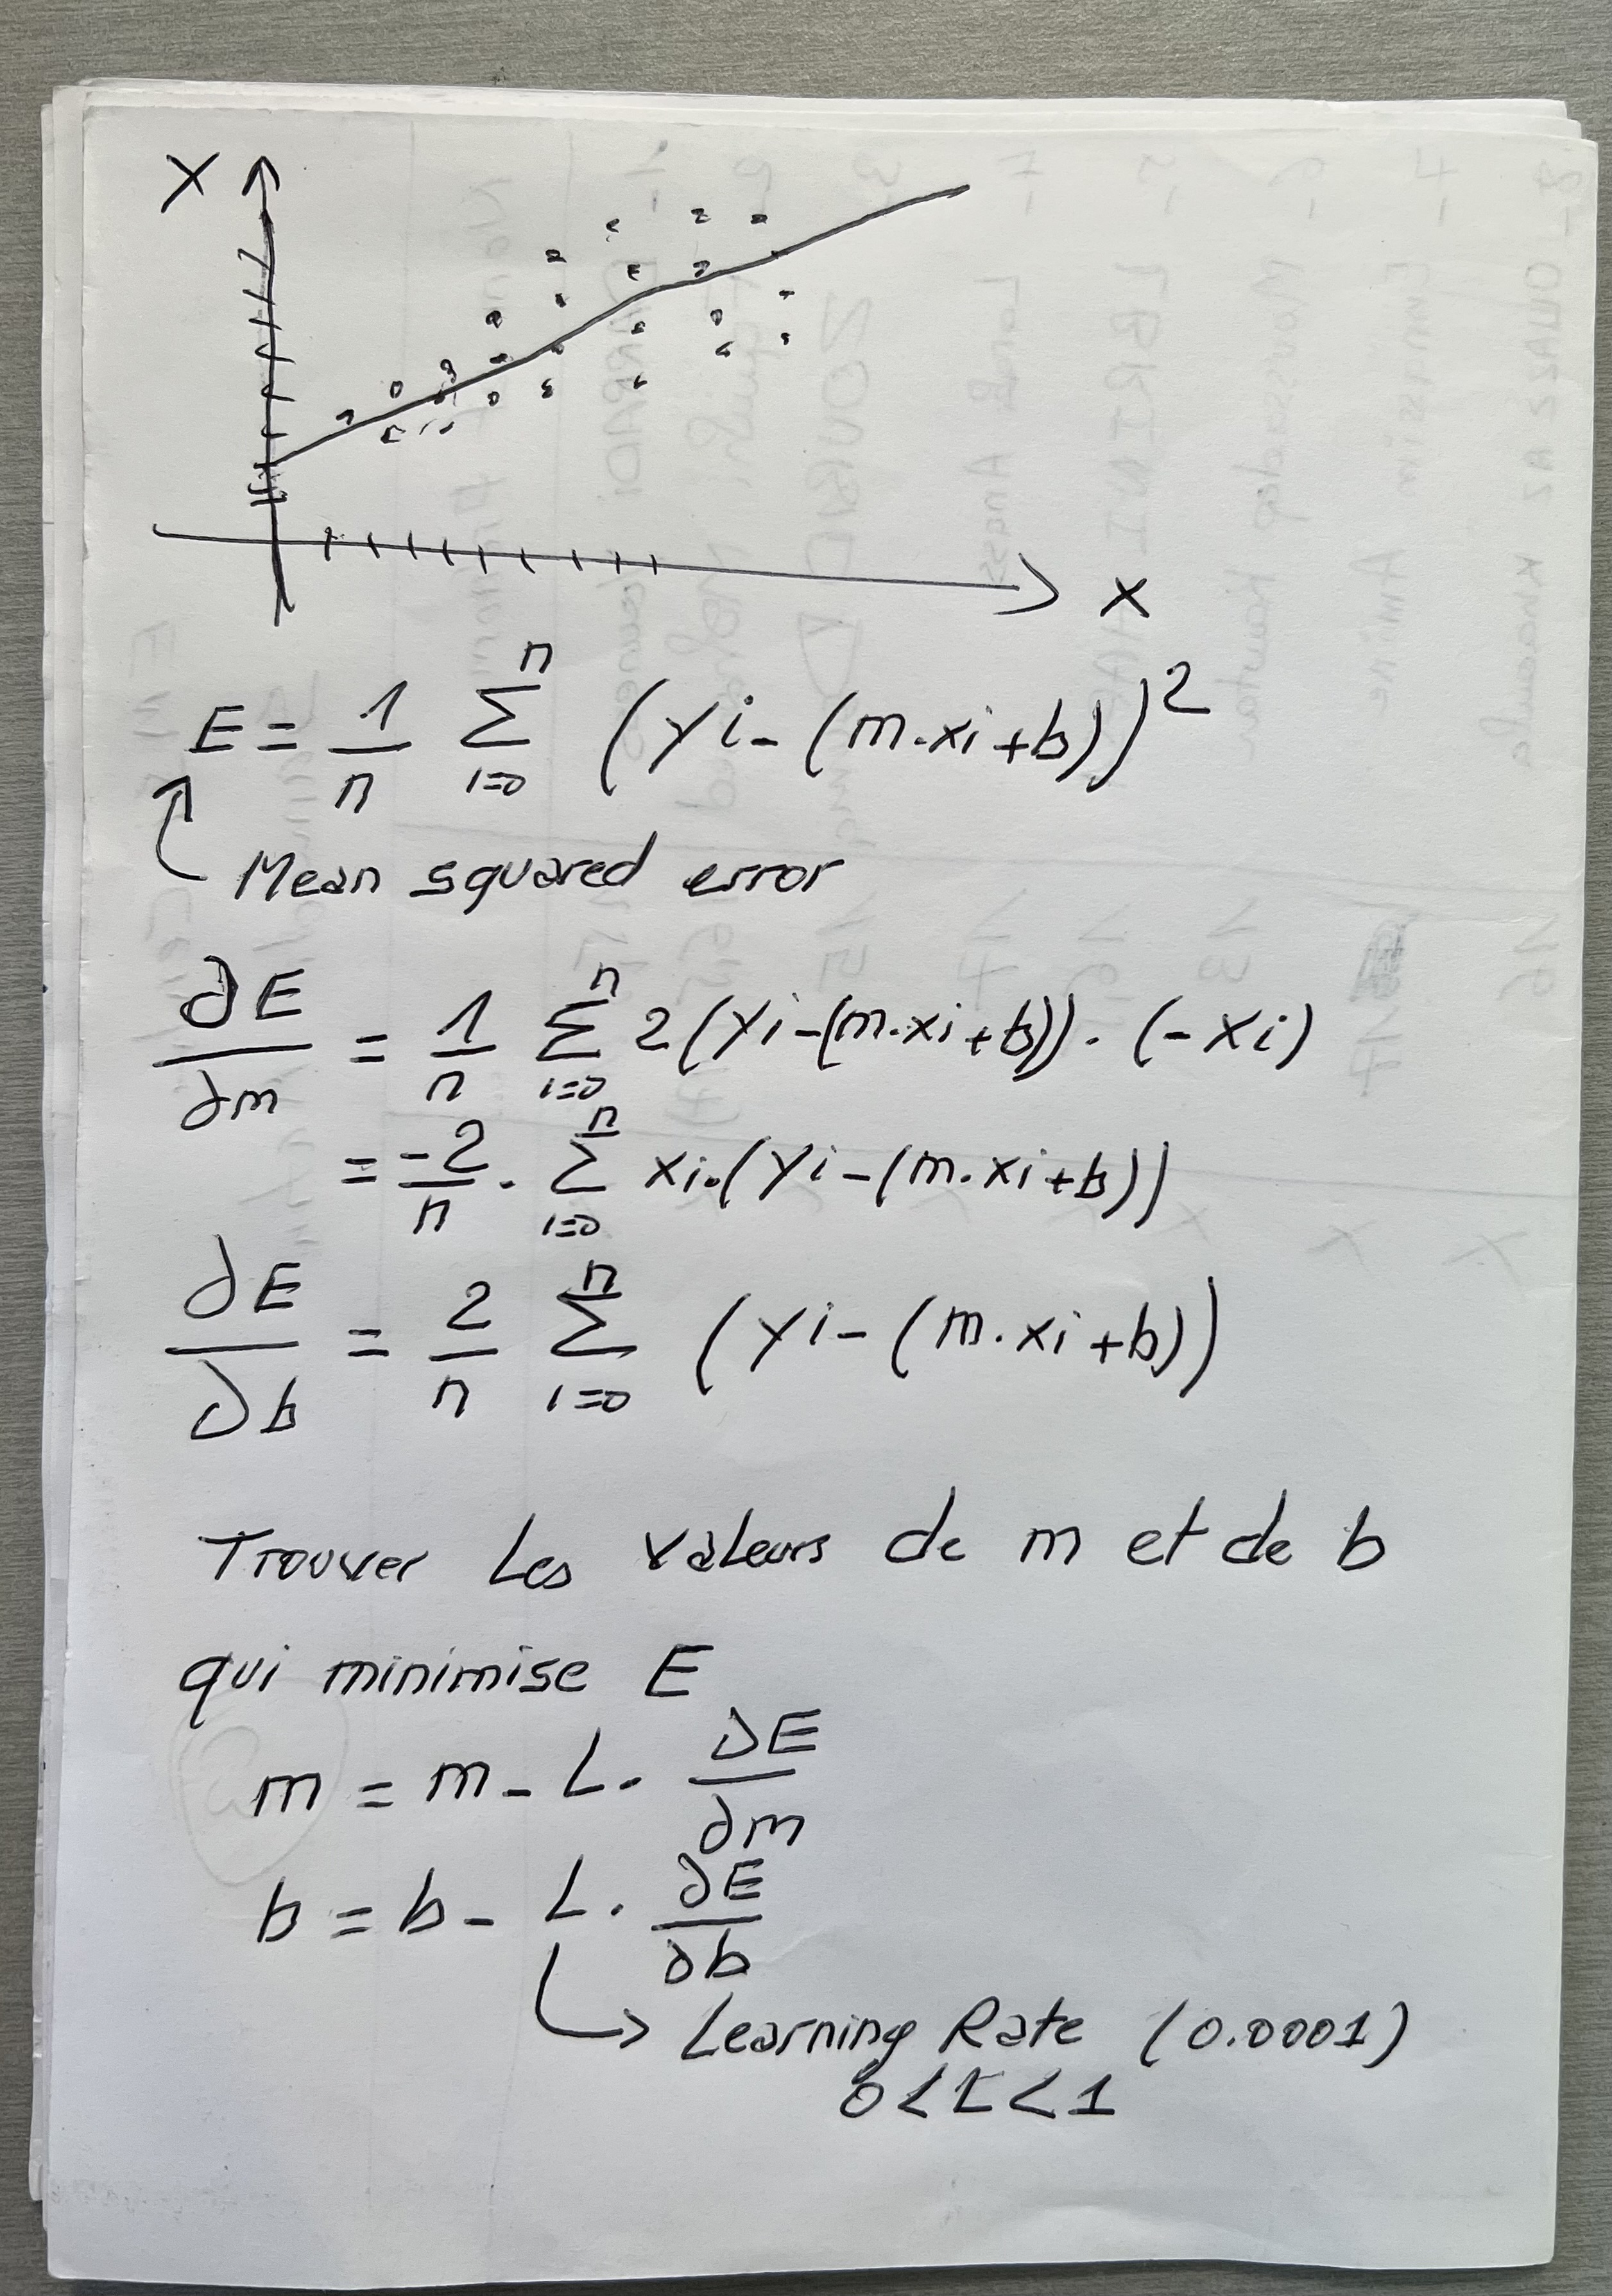 X
X
E = 1/n ∑_{i=0}^{n} (yi - (m.xi + b))²
Mean squared error
∂E/∂m = 1/n ∑_{i=0}^{n} 2(yi - (m.xi + b)). (-xi)
= -2/n . ∑_{i=0}^{n} xi.(yi - (m.xi + b))
∂E/∂b = 2/n ∑_{i=0}^{n} (yi - (m.xi + b))
Trouver Les valeurs de m et de b
qui minimise E
m = m - L. ∂E/∂m
b = b - L. ∂E/∂b
Learning Rate (0.0001)
0 < L < 1